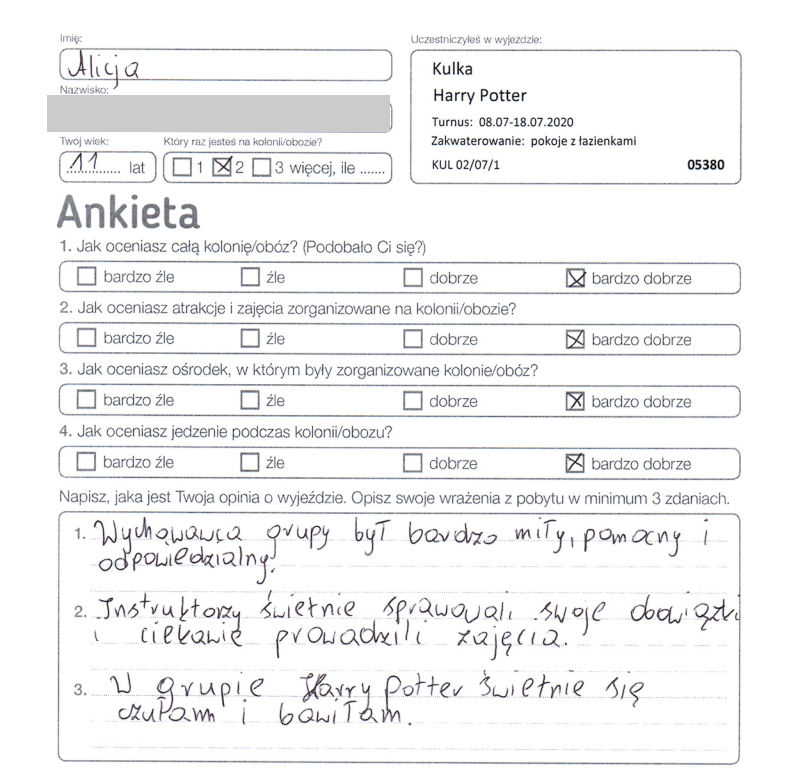 Imię:
Alicja
Nazwisko:
Twój wiek:
11 lat
Który raz jesteś na kolonii/obozie?
1 2 3 więcej, ile .......
Uczestniczyłeś w wyjeździe:
Kulka
Harry Potter
Turnus: 08.07-18.07.2020
Zakwaterowanie: pokoje z łazienkami
KUL 02/07/1 05380
Ankieta
1. Jak oceniasz całą kolonię/obóz? (Podobało Ci się?)
bardzo źle źle dobrze bardzo dobrze
2. Jak oceniasz atrakcje i zajęcia zorganizowane na kolonii/obozie?
bardzo źle źle dobrze bardzo dobrze
3. Jak oceniasz ośrodek, w którym były zorganizowane kolonie/obóz?
bardzo źle źle dobrze bardzo dobrze
4. Jak oceniasz jedzenie podczas kolonii/obozu?
bardzo źle źle dobrze bardzo dobrze
Napisz, jaka jest Twoja opinia o wyjeździe. Opisz swoje wrażenia z pobytu w minimum 3 zdaniach.
1. Wychowawca grupy był bardzo miły, pomocny i
odpowiedzialny.
2. Instruktorzy świetnie sprawowali swoje obowiązki
i ciekawie prowadzili zajęcia.
3. W grupie Harry Potter świetnie się
czułam i bawiłam.